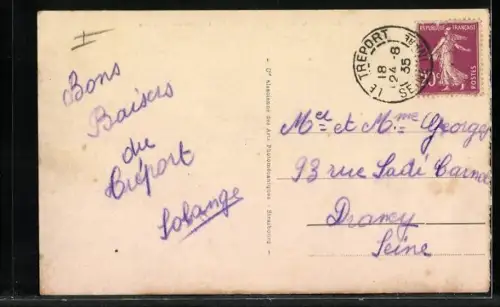 Bons
Baisers
du
Tréport
Solange
LE TREPORT
18
24-8
35
SE
REPUBLIQUE FRANÇAISE
20c
POSTES
Cie Alsacienne des Arts Photomécaniques - Strasbourg
Mel et Mme Georges
93 rue Sadi Carnot
Drancy
Seine